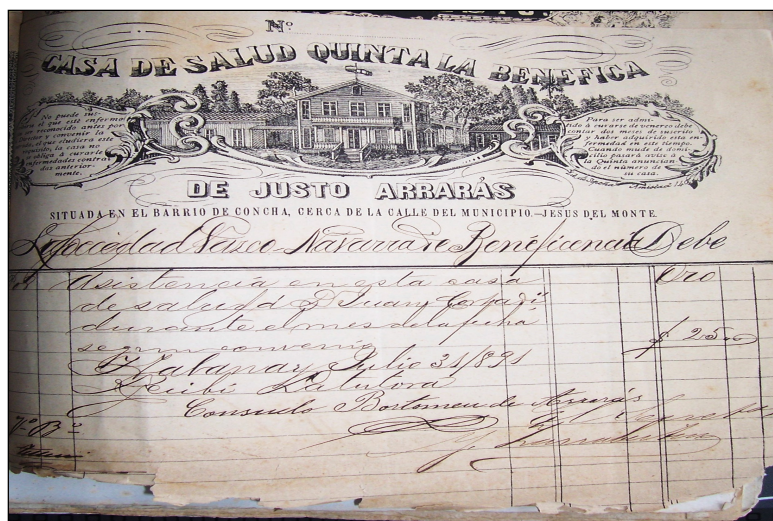 Nº
CASA DE SALUD QUINTA LA BENEFICA
No puede sus-
el que esté enfermo
reconocido antes por
y convenir la
el que eludiera este
requisito, la casa no
obliga á curarle
enfermedades contrai
das anterior-
mente.
Para ser admi-
tido á curarse de venereo debe
contar dos meses de suscrito
y haber adquirido esta en
fermedad en este tiempo.
Cuando mude de domi-
cilio pasará aviso á
la Quinta anuncian
do el número de
su casa.
DE JUSTO ARRARÁS
SITUADA EN EL BARRIO DE CONCHA, CERCA DE LA CALLE DEL MUNICIPIO.—JESUS DEL MONTE.
La Sociedad Vasco-Navarra de Beneficencia Debe
Asistencia en esta casa Oro
de salud á D. Juan
durante el mes de la fecha
segun convenio $ 25
Habana y Julio 31/891
Recibí La tutora
Consuelo Bortomeu de Arrarás
Vº Bº